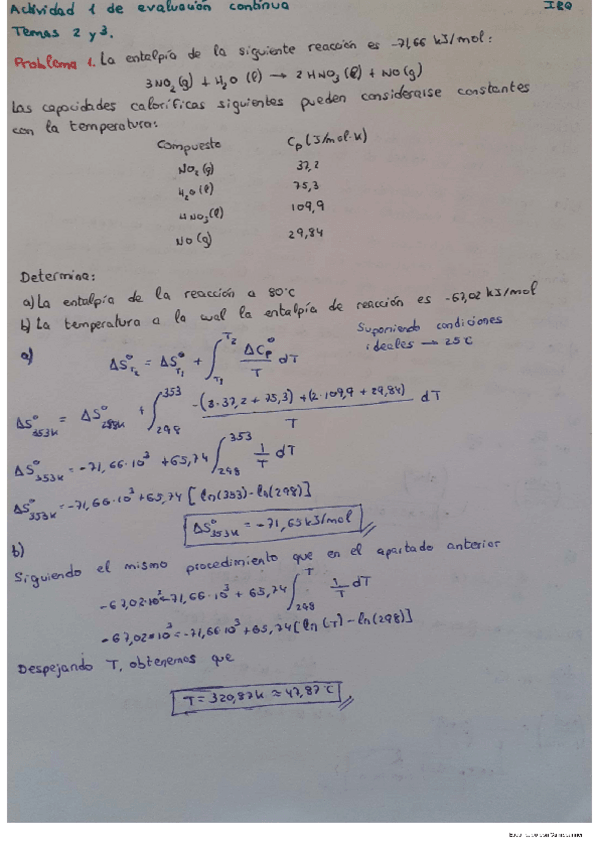 Actividad 1 de evaluación continua IBQ
Temas 2 y 3.
Problema 1. La entalpía de la siguiente reacción es -71,66 kJ/mol:
3NO₂(g) + H₂O (l) → 2HNO₃(l) + NO(g)
Las capacidades caloríficas siguientes pueden considerarse constantes
con la temperatura:
Compuesto Cp (J/mol·K)
NO₂ (g) 37,2
H₂O (l) 75,3
HNO₃ (l) 109,9
NO (g) 29,84
Determina:
a) La entalpía de la reacción a 80°C
b) La temperatura a la cual la entalpía de reacción es -67,02 kJ/mol
Suponiendo condiciones
ideales → 25°C
a) ΔS°T₂ = ΔS°T₁ + ∫T₁^T₂ ΔCp°/T dT
ΔS°353K = ΔS°298K + ∫298^353 -(3·37,2 + 75,3)+(2·109,9 + 29,84)/T dT
ΔS°353K = -71,66·10³ + 65,74 ∫298^353 1/T dT
ΔS°353K = -71,66·10³ + 65,74 [ln(353) - ln(298)]
ΔS°353K = -71,65 kJ/mol
b)
Siguiendo el mismo procedimiento que en el apartado anterior
-67,02·10³ = -71,66·10³ + 65,74 ∫298^T 1/T dT
-67,02·10³ = -71,66·10³ + 65,74 [ln(T) - ln(298)]
Despejando T, obtenemos que
T = 320,87K ≈ 47,87°C